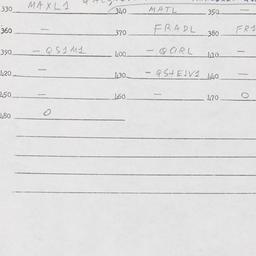 330 MAXL1 340 MATL 350 -
360 - 370 FRADL 380 FR
390 -QS1M1 400 -QORL 410 -
420 - 430 -QSHEJV1 440 -
450 - 460 - 470 0
480 0